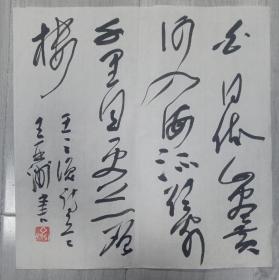 白日依山尽黄
河入海流欲穷
千里目更上一层
楼
王之涣诗